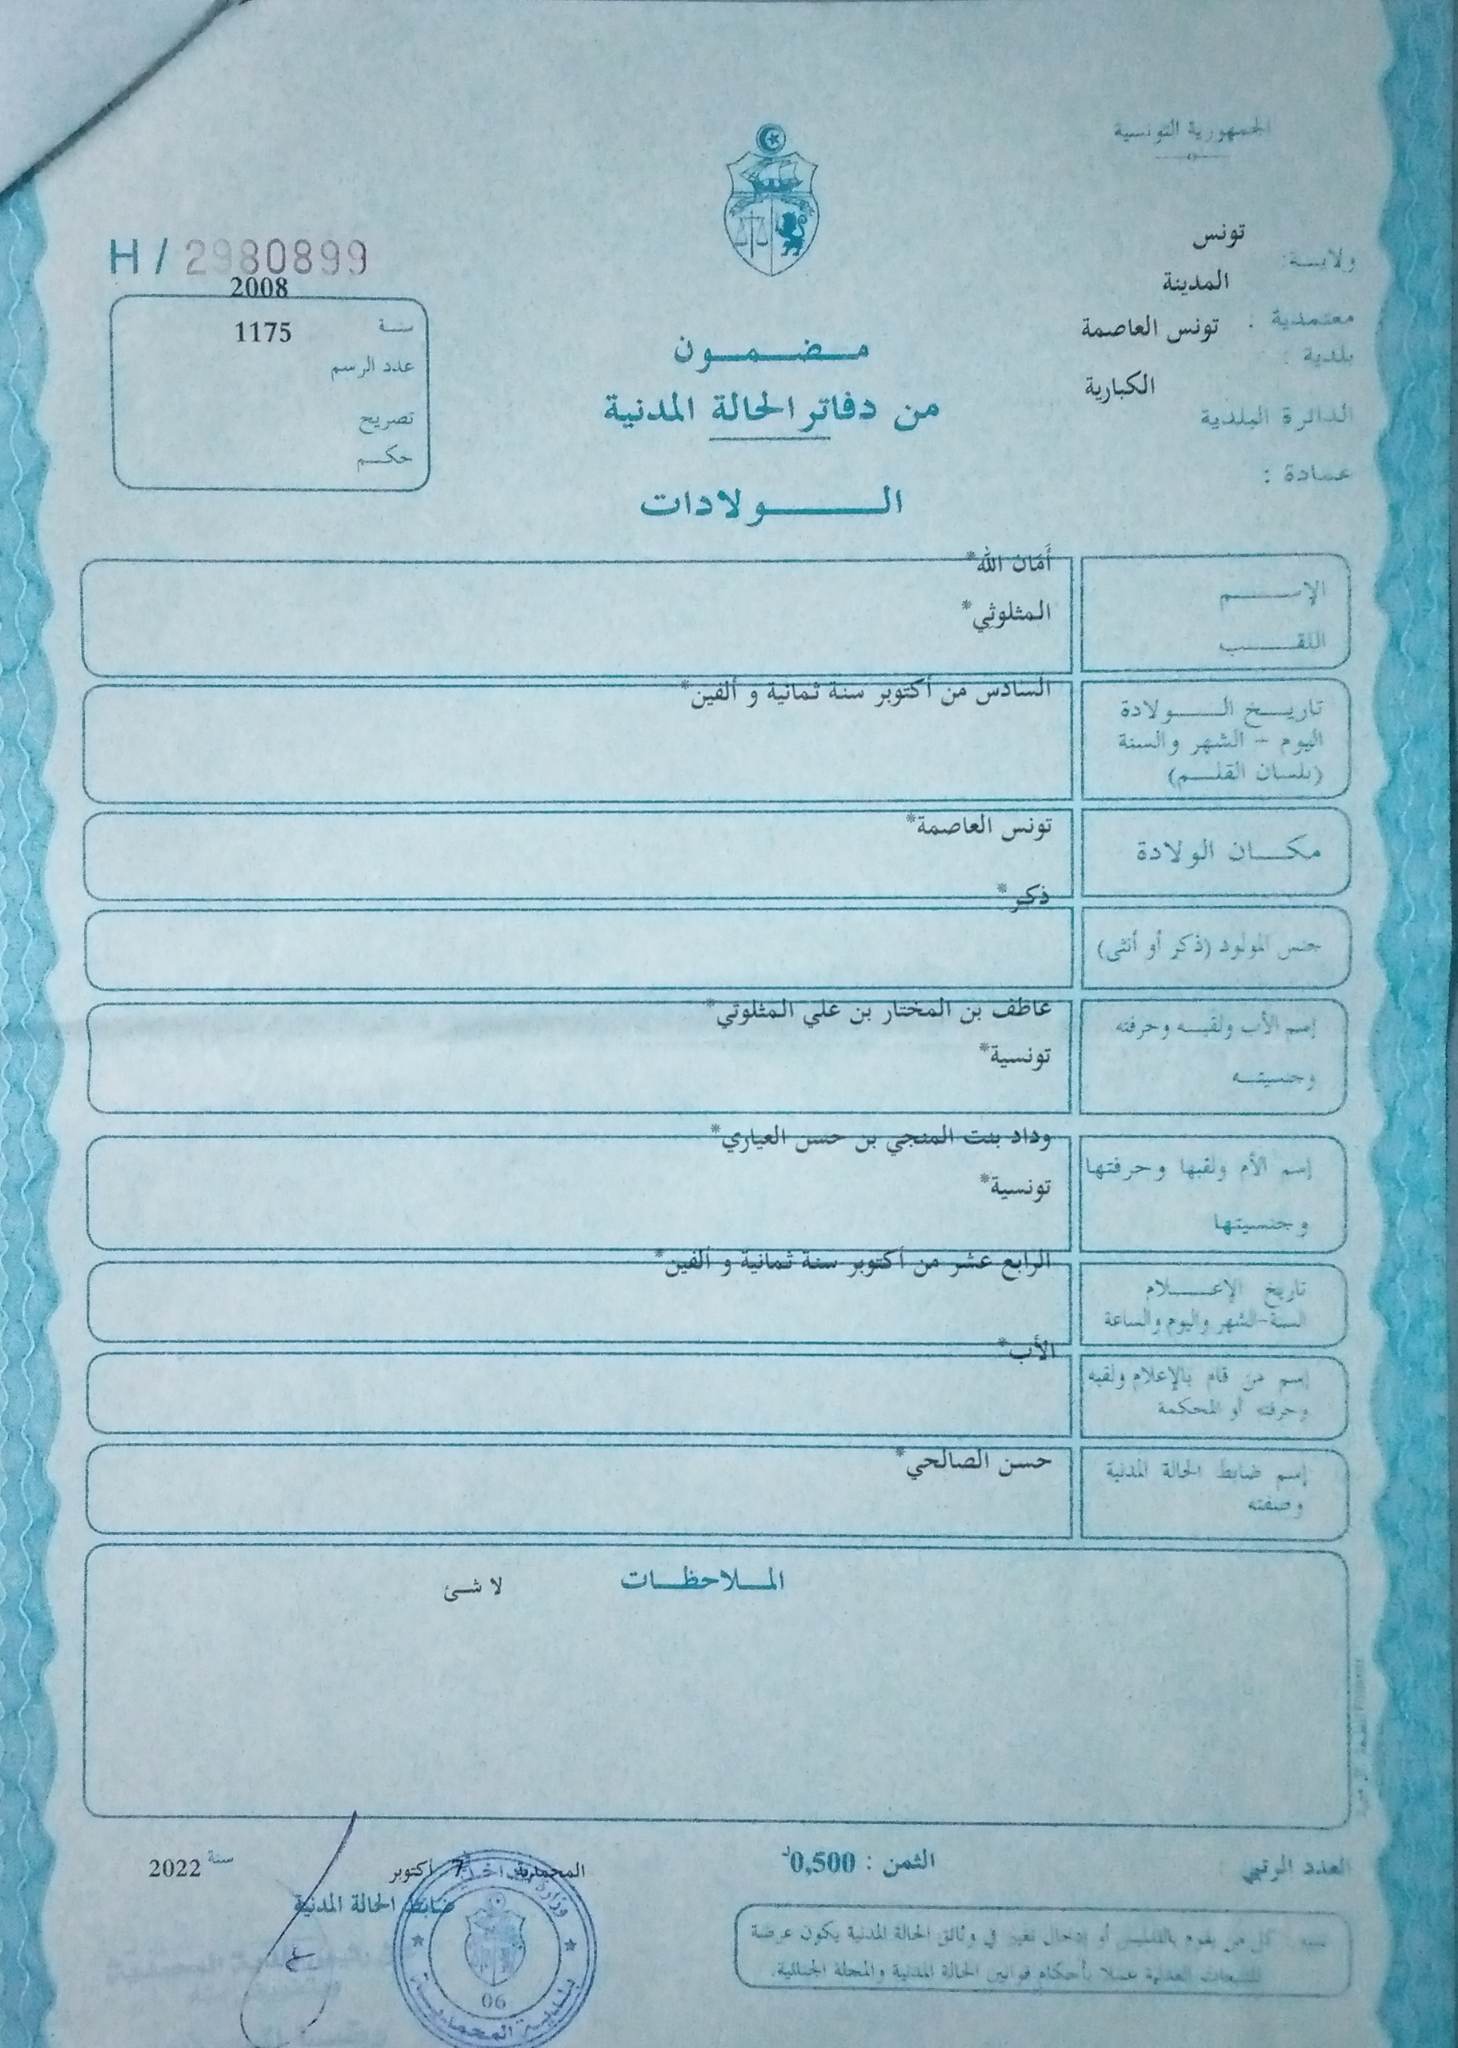 الجمهورية التونسية
ولايــة: تونس
المدينة
معتمدية : تونس العاصمة
بلدية :
الكبارية
الدائرة البلدية
عمادة :
H / 2980899
2008
سنـة 1175
عدد الرسم
تصريح
حكـم
مـضـمـون
من دفاتر الحالة المدنية
الـولادات
أَمَان الله*
الإسـم
المثلوثي*
اللقـب
السادس من أكتوبر سنة ثمانية و ألفين*
تاريـخ الـولادة
اليوم - الشهر والسنة
(بلسان القلـم)
تونس العاصمة*
مكـان الولادة
ذكر*
جنس المولود (ذكر أو أنثى)
عاطف بن المختار بن علي المثلوثي*
إسم الأب ولقبـه وحرفته
تونسية*
وجنسيتـه
وداد بنت المنجي بن حسن العياري*
إسم الأم ولقبها وحرفتها
تونسية*
وجنسيتها
الرابع عشر من أكتوبر سنة ثمانية و ألفين*
تاريخ الإعـلام
السنة-الشهر واليوم والساعة
الأب*
إسم من قام بالإعلام ولقبه
وحرفته أو المحكمة
حسن الصالحي*
إسم ضابط الحالة المدنية
وصفته
المـلاحظـات
لا شئ
العدد الرتبي
الثمن : 0,500د
المحمدية 7 أكتوبر سنة 2022
ضابط الحالة المدنية
كل من يقوم بالتدليس أو إدخال تغيير في وثائق الحالة المدنية يكون عرضة
للتتبعات العدلية عملا بأحكام قوانين الحالة المدنية والمجلة الجنائية.
وزارة الداخلية
06
بلدية المحمدية